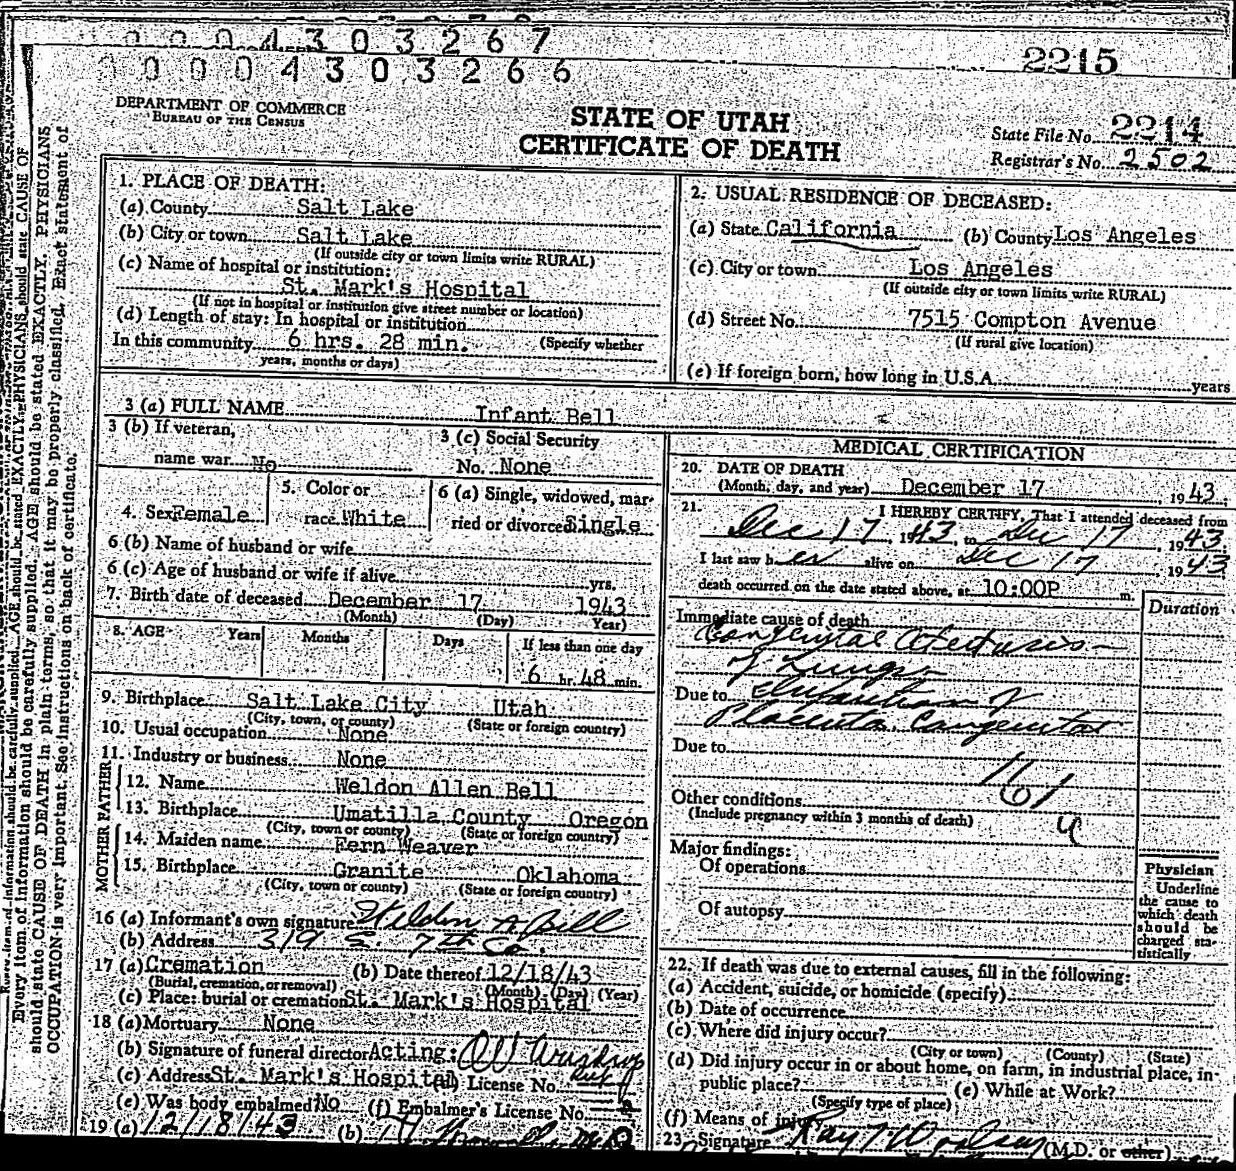 0 0 0 4 3 0 3 2 6 7
0 0 0 4 3 0 3 2 6 6
2215
DEPARTMENT OF COMMERCE
BUREAU OF THE CENSUS
STATE OF UTAH
CERTIFICATE OF DEATH
State File No. 2214
Registrar's No. 2502
1. PLACE OF DEATH:
(a) County Salt Lake
(b) City or town Salt Lake
(If outside city or town limits write RURAL)
(c) Name of hospital or institution:
St. Mark's Hospital
(If not in hospital or institution give street number or location)
(d) Length of stay: In hospital or institution
In this community 6 hrs. 28 min. (Specify whether
years, months or days)
2. USUAL RESIDENCE OF DECEASED:
(a) State California (b) County Los Angeles
(c) City or town Los Angeles
(If outside city or town limits write RURAL)
(d) Street No. 7515 Compton Avenue
(If rural give location)
(e) If foreign born, how long in U.S.A. years
3 (a) FULL NAME Infant Bell
3 (b) If veteran,
name war No
3 (c) Social Security
No. None
4. Sex Female
5. Color or
race White
6 (a) Single, widowed, mar-
ried or divorced Single
6 (b) Name of husband or wife
6 (c) Age of husband or wife if alive yrs.
7. Birth date of deceased December 17 1943
(Month) (Day) Year)
8. AGE Years Months Days If less than one day
6 hr. 48 min.
9. Birthplace Salt Lake City Utah
(City, town, or county) (State or foreign country)
10. Usual occupation None
11. Industry or business None
FATHER
12. Name Weldon Allen Bell
13. Birthplace Umatilla County Oregon
(City, town or county) (State or foreign country)
MOTHER
14. Maiden name Fern Weaver
15. Birthplace Granite Oklahoma
(City, town or county) (State or foreign country)
16 (a) Informant's own signature Weldon A Bell
(b) Address 319 S. 7th
17 (a) Cremation (b) Date thereof 12/18/43
(Burial, cremation, or removal) (Month) (Day) (Year)
(c) Place: burial or cremation St. Mark's Hospital
18 (a) Mortuary None
(b) Signature of funeral director Acting:
(c) Address St. Mark's Hospital (d) License No.
(e) Was body embalmed No (f) Embalmer's License No.
19 (a) 12/18/43 (b)
MEDICAL CERTIFICATION
20. DATE OF DEATH
(Month, day, and year) December 17, 1943.
21. I HEREBY CERTIFY, That I attended deceased from
Dec 17, 1943, to Dec 17, 1943
I last saw her alive on Dec 17 1943
death occurred on the date stated above, at 10:00P m.
Duration
Immediate cause of death
Congenital Atelectasis
of Lungs
Due to Infarction of
Placenta Congenital
Due to
161
Other conditions
(Include pregnancy within 3 months of death)
Major findings:
Of operations
Of autopsy
Physician
Underline
the cause to
which death
should be
charged sta-
tistically
22. If death was due to external causes, fill in the following:
(a) Accident, suicide, or homicide (specify)
(b) Date of occurrence
(c) Where did injury occur?
(City or town) (County) (State)
(d) Did injury occur in or about home, on farm, in industrial place, in
public place? (e) While at Work?
(Specify type of place)
(f) Means of injury
23. Signature Ray T Woolsey (M.D. or other)
Every item of information should be carefully supplied. AGE should be stated EXACTLY. PHYSICIANS
should state CAUSE OF DEATH in plain terms, so that it may be properly classified. Exact statement of
OCCUPATION is very important. See instructions on back of certificate.